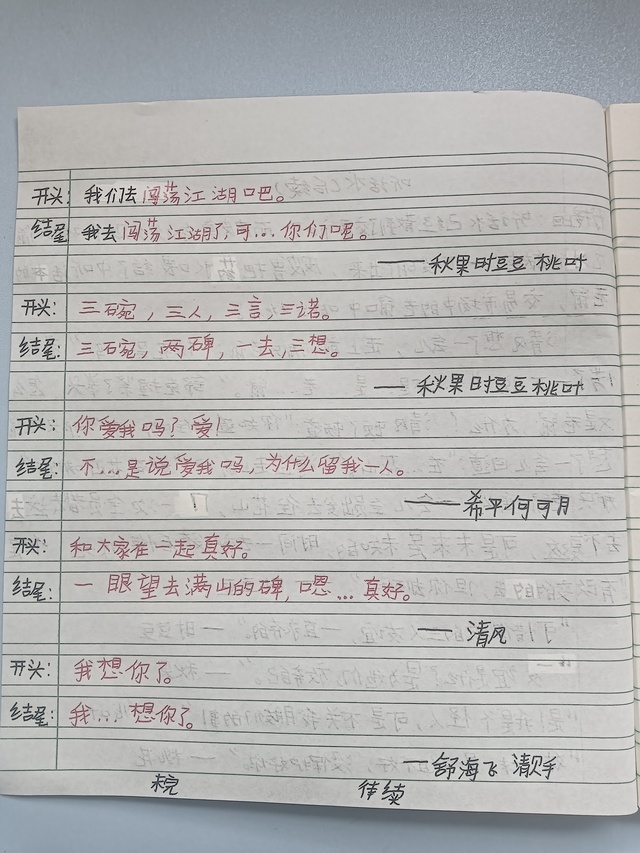 开头: 我们去闯荡江湖吧。
结尾: 我去闯荡江湖了,可...你们呢。
——秋果时豆豆桃叶
开头: 三碗,三人,三言三诺。
结尾: 三碗,两碑,一去,三想。
——秋果时豆豆桃叶
开头: 你爱我吗?爱!
结尾: 不...是说爱我吗,为什么留我一人。
——希平何可月
开头: 和大家在一起真好。
结尾: 一眼望去满山的碑,嗯...真好。
——清风
开头: 我想你了。
结尾: 我...想你了。
——舒海飞 清
未完 待续